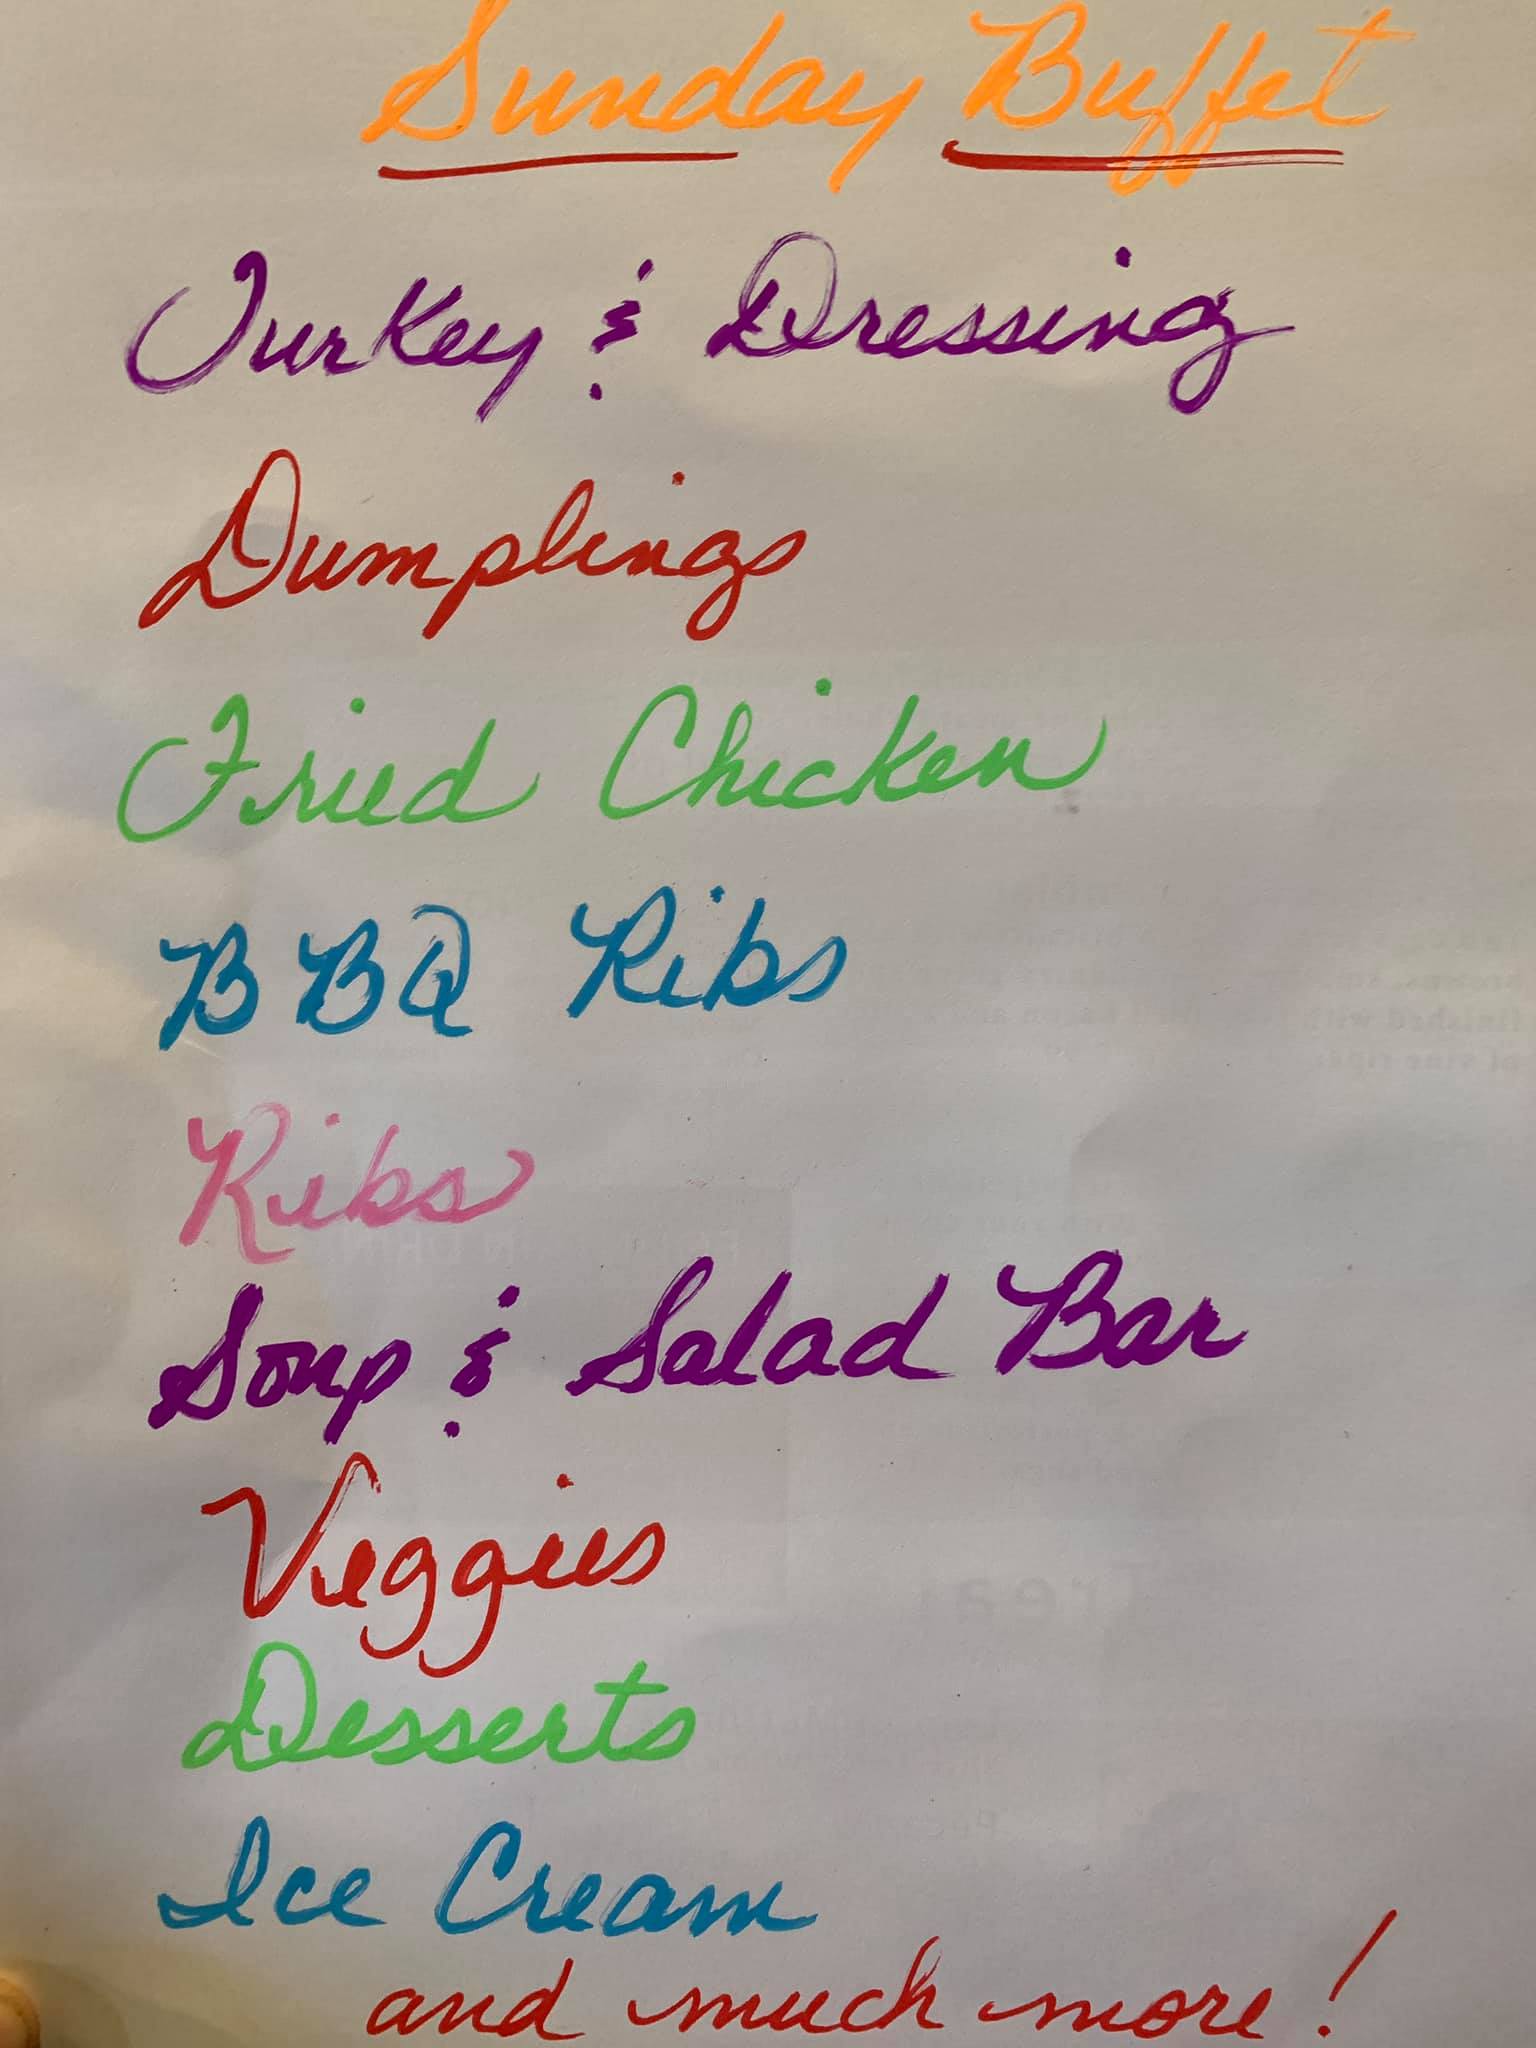 Sunday Buffet
Turkey & Dressing
Dumplings
Fried Chicken
BBQ Ribs
Ribs
Soup & Salad Bar
Veggies
Desserts
Ice Cream
and much more!